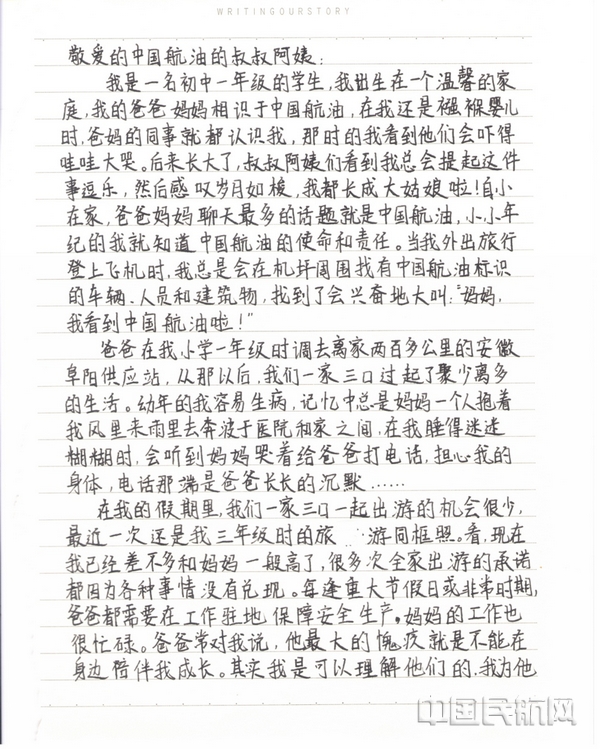 WRITINGOURSTORY
敬爱的中国航油的叔叔阿姨:
我是一名初中一年级的学生,我出生在一个温馨的家
庭,我的爸爸妈妈相识于中国航油,在我还是襁褓婴儿
时,爸妈的同事就都认识我,那时的我看到他们会吓得
哇哇大哭。后来长大了,叔叔阿姨们看到我总会提起这件
事逗乐,然后感叹岁月如梭,我都长成大姑娘啦!自小
在家,爸爸妈妈聊天最多的话题就是中国航油,小小年
纪的我就知道中国航油的使命和责任。当我外出旅行
登上飞机时,我总是会在机坪周围找有中国航油标识
的车辆、人员和建筑物,找到了会兴奋地大叫:“妈妈,
我看到中国航油啦!”
爸爸在我小学一年级时调去离家两百多公里的安徽
阜阳供应站,从那以后,我们一家三口过起了聚少离多
的生活。幼年的我容易生病,记忆中总是妈妈一个人抱着
我风里来雨里去奔波于医院和家之间,在我睡得迷迷
糊糊时,会听到妈妈哭着给爸爸打电话,担心我的
身体,电话那端是爸爸长长的沉默……
在我的假期里,我们一家三口一起出游的机会很少,
最近一次还是我三年级时的旅游同框照。看,现在
我已经差不多和妈妈一般高了,很多次全家出游的承诺
都因为各种事情没有兑现。每逢重大节假日或非常时期,
爸爸都需要在工作驻地保障安全生产。妈妈的工作也
很忙碌。爸爸常对我说,他最大的愧疚就是不能在
身边陪伴我成长。其实我是可以理解他们的,我为他
中国民航网